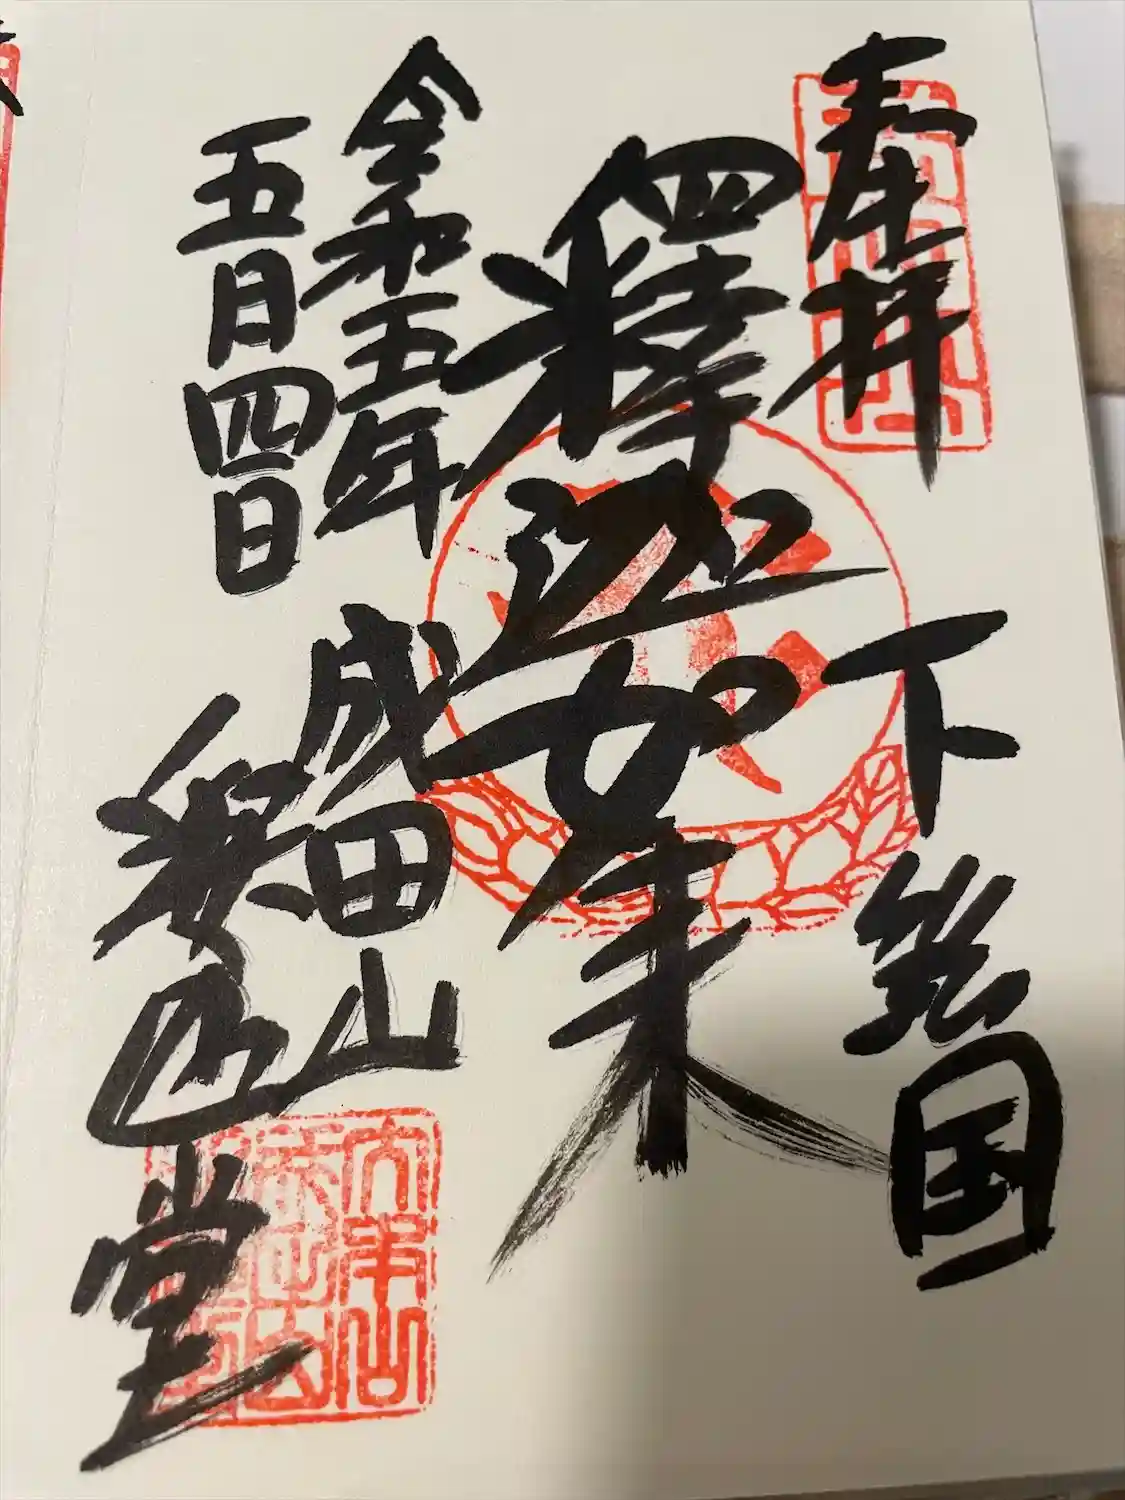 奉拝
下総国
釋迦如来
令和五年
五月四日
成田山
釈迦堂